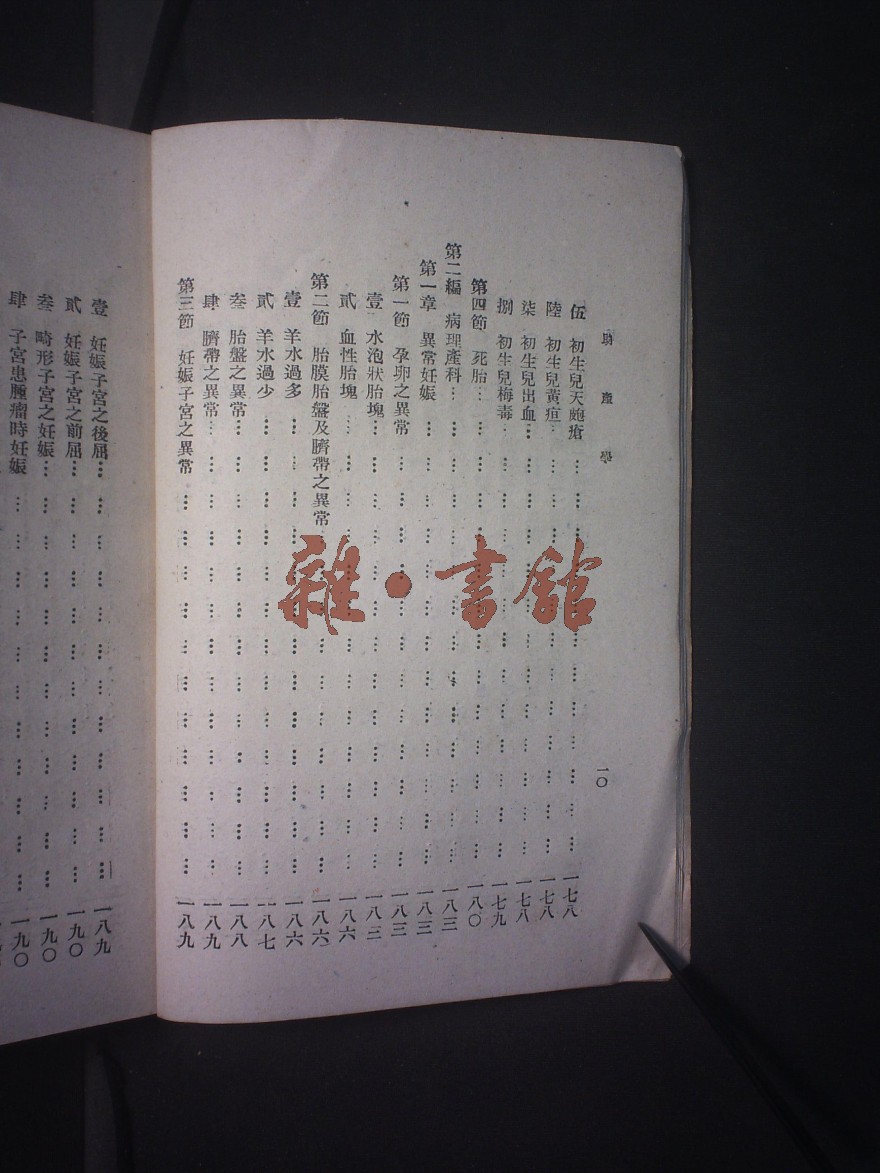 助產學
一〇
伍 初生兒天皰瘡 … … … … … … … 一七八
陸 初生兒黃疸 … … … … … … … 一七八
柒 初生兒出血 … … … … … … … 一七八
捌 初生兒梅毒 … … … … … … … 一七九
第四節 死胎 … … … … … … … 一八〇
第二編 病理產科 … … … … … … … 一八三
第一章 異常妊娠 … … … … … … … 一八三
第一節 孕卵之異常 … … … … … … … 一八三
壹 水泡狀胎塊 … … … … … … … 一八三
貳 血性胎塊 … … … … … … … 一八六
第二節 胎膜胎盤及臍帶之異常 … … … … … … 一八六
壹 羊水過多 … … … … … … … 一八六
貳 羊水過少 … … … … … … … 一八七
叁 胎盤之異常 … … … … … … … 一八八
肆 臍帶之異常 … … … … … … … 一八九
第三節 妊娠子宮之異常 … … … … … … … 一八九
壹 妊娠子宮之後屈 … … … … … … … 一八九
貳 妊娠子宮之前屈 … … … … … … … 一九〇
叁 畸形子宮之妊娠 … … … … … … … 一九〇
肆 子宮患腫瘤時妊娠 … … … … … … … 一九〇
雜·書館